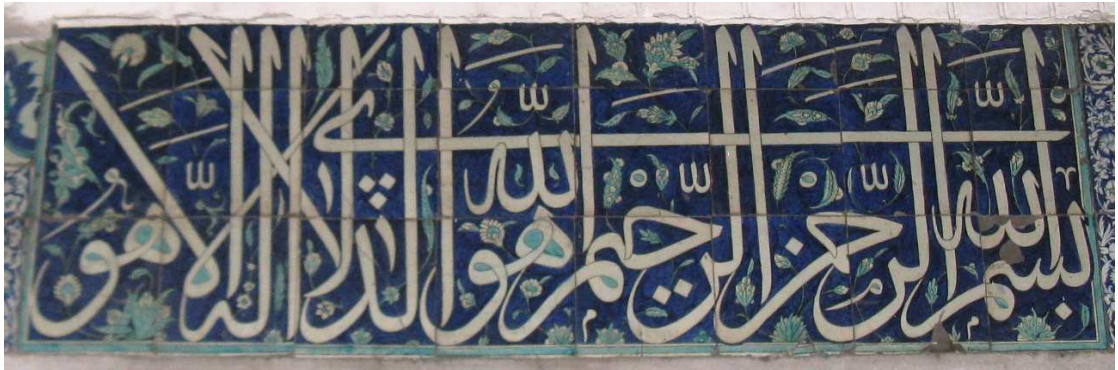 بسم الله الرحمن الرحيم هو الله الذي لا اله الا هو